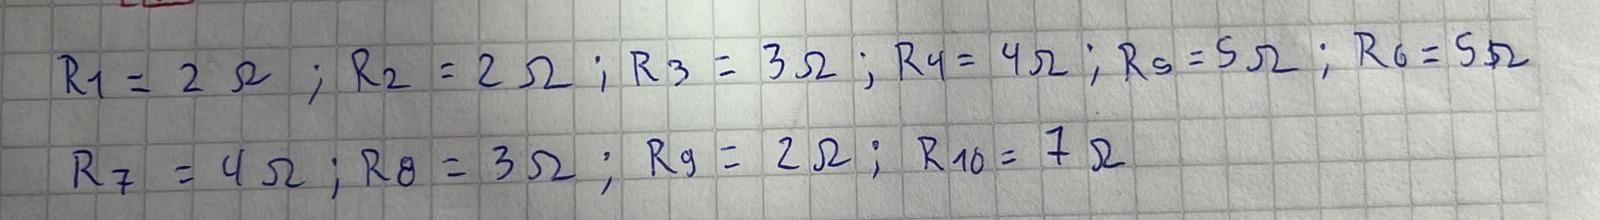 R1 = 2 Ω ; R2 = 2 Ω ; R3 = 3 Ω ; R4 = 4 Ω ; R5 = 5 Ω ; R6 = 5 Ω
R7 = 4 Ω ; R8 = 3 Ω ; R9 = 2 Ω ; R10 = 7 Ω